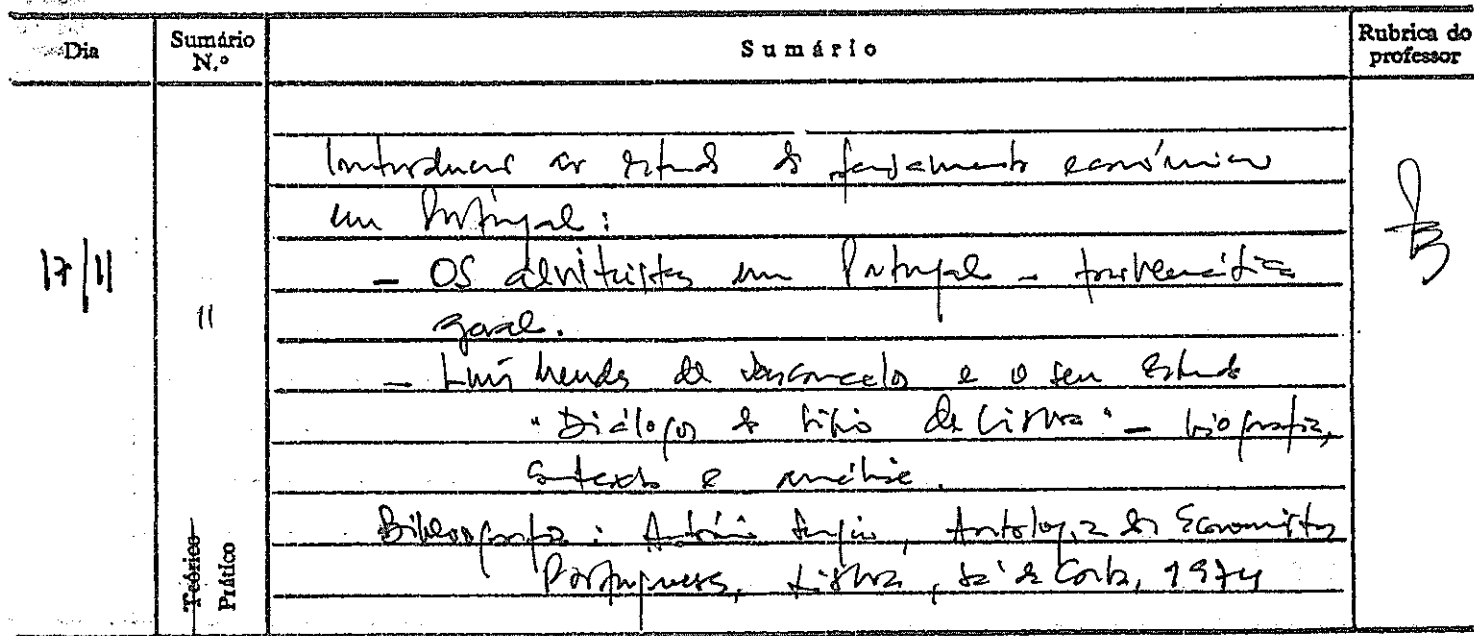 Dia
Sumário N.º
Sumário
Rubrica do professor
17/11
11
Teórico
Prático
Introdução ao estudo do pensamento económico
em Portugal:
- Os alvitristas em Portugal - problemática
geral.
- Luís Mendes de Vasconcelos e o seu estudo
"Diálogos do Sítio de Lisboa" - biografia,
contexto e análise.
Bibliografia: António Sérgio, Antologia dos Economistas
Portugueses, Lisboa, Sá da Costa, 1974